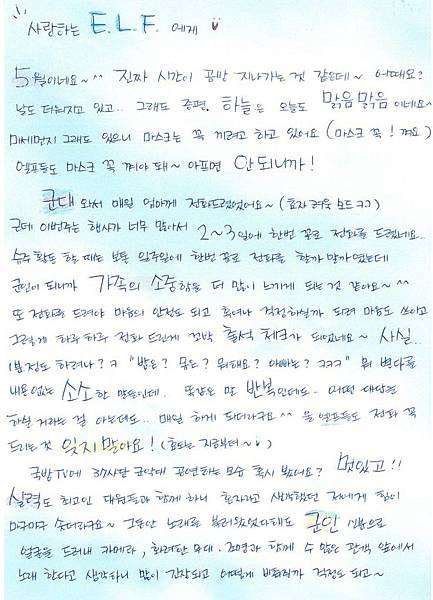 사랑하는 E.L.F. 에게
5월이네요~^^ 진짜 시간이 금방 지나가는 것 같은데~ 어때요?
날도 더워지고 있고.. 그래도 증평. 하늘은 오늘도 맑음맑음 이네요~
미세먼지 그래도 있으니 마스크는 꼭 끼려고 하고 있어요 (마스크 꼭! 껴요)
엘프들도 마스크 꼭 껴야 돼~ 아프면 안되니까!
군대 와서 매일 엄마께 전화드렸었어요~ (효자 려욱 모드 ㅋㅋ)
근데 이번주는 행사가 너무 많아서 2~3일에 한번 꼴로 전화를 드렸네요..
슈주 활동 할 때는 보통 일주일에 한번 꼴로 전화를 할까 말까였는데
군인이 되니까 가족의 소중함을 더 많이 느끼게 되는 것 같아요~^^
또 전화를 드려야 마음의 안정도 되고 혹여나 걱정하실까 되려 마음도 쓰이고
그렇게 하루 하루 전화 드린게 꼬박 출석 체크가 되었네요~ 사실..
1분 정도 하려나? ㅋ "밥은? 몸은? 뭐해요? 아빠는? ㅋㅋㅋ" 뭐 별다를
내용 없는 소소한 말들인데. 똑같은 말 반복인데도.. 어떤 대답을
하실 거라는 걸 아는데도.. 매일 하게 되더라구요^^ 울 엘프들도 전화 꼭
드리는 것 잊지 말아요! (효도는 지금부터~)
국방TV에 37사단 군악대 공연하는 모습 혹시 봤어요? 멋있고!!
실력도 최고인 대원들과 함께 하니 혼자라고 생각했던 저에게 힘이
마구마구 솟더라구요~ 그동안 노래를 불러왔었다해도 군인 신분으로
얼굴을 드러내 카메라, 화려한 무대. 조명과 함께 수 많은 관객 앞에서
노래 한다고 생각하니 많이 긴장되고 어떻게 비춰질까 걱정도 되고~